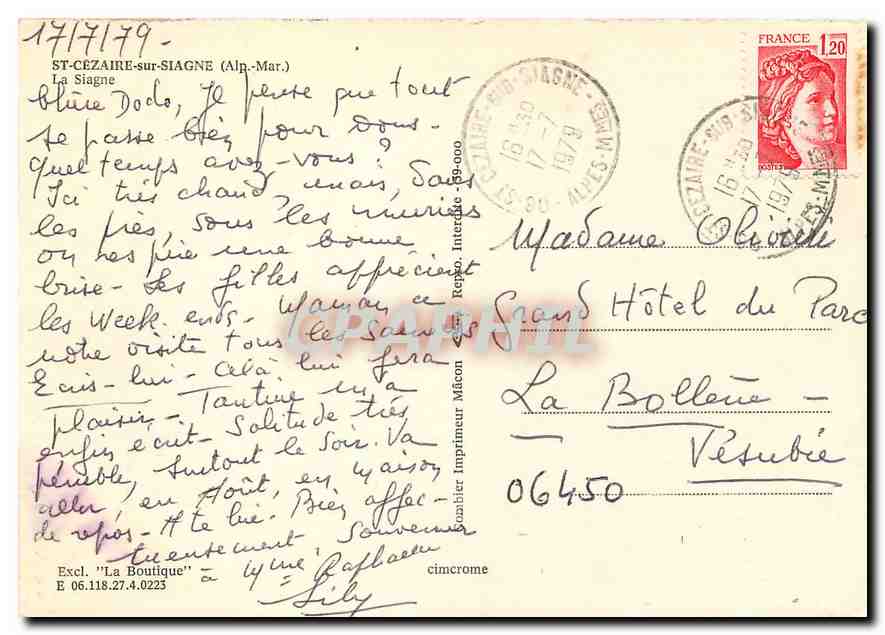 17/7/79 -
ST-CÉZAIRE-sur-SIAGNE (Alp.-Mar.)
La Siagne
Chère Dodo, Je pense que tout
se passe bien pour vous -
Quel temps avez-vous ?
Ici très chaud, mais, sous
les pins, sous les muriers
on respire une bonne
brise - Les filles apprécient
les week-ends - Maman a
notre visite tous les samedis
Ecris-lui - Celà lui fera
plaisir - Tantine m'a
enfin écrit - Solitude très
pénible, surtout le soir. Va
aller, en Août, en maison
de repos - A te lire - Bien affec-
tueusement, Souvenir
à Mme Raphaelle
Lily
Excl. "La Boutique"
E 06.118.27.4.0223
cimcrome
Combier Imprimeur Mâcon Repro. Interdite - 69-000
CPAPHIL
ST CEZAIRE-SUR-SIAGNE - 06 - ALPES-MMES
16 H 30
17 -7
1979
FRANCE 1,20
POSTES
ST CEZAIRE-SUR-S
16 H 30
17
1979
ALPES-MMES
Madame
Grand Hôtel du Parc
La Bollène -
Vésubie
06450